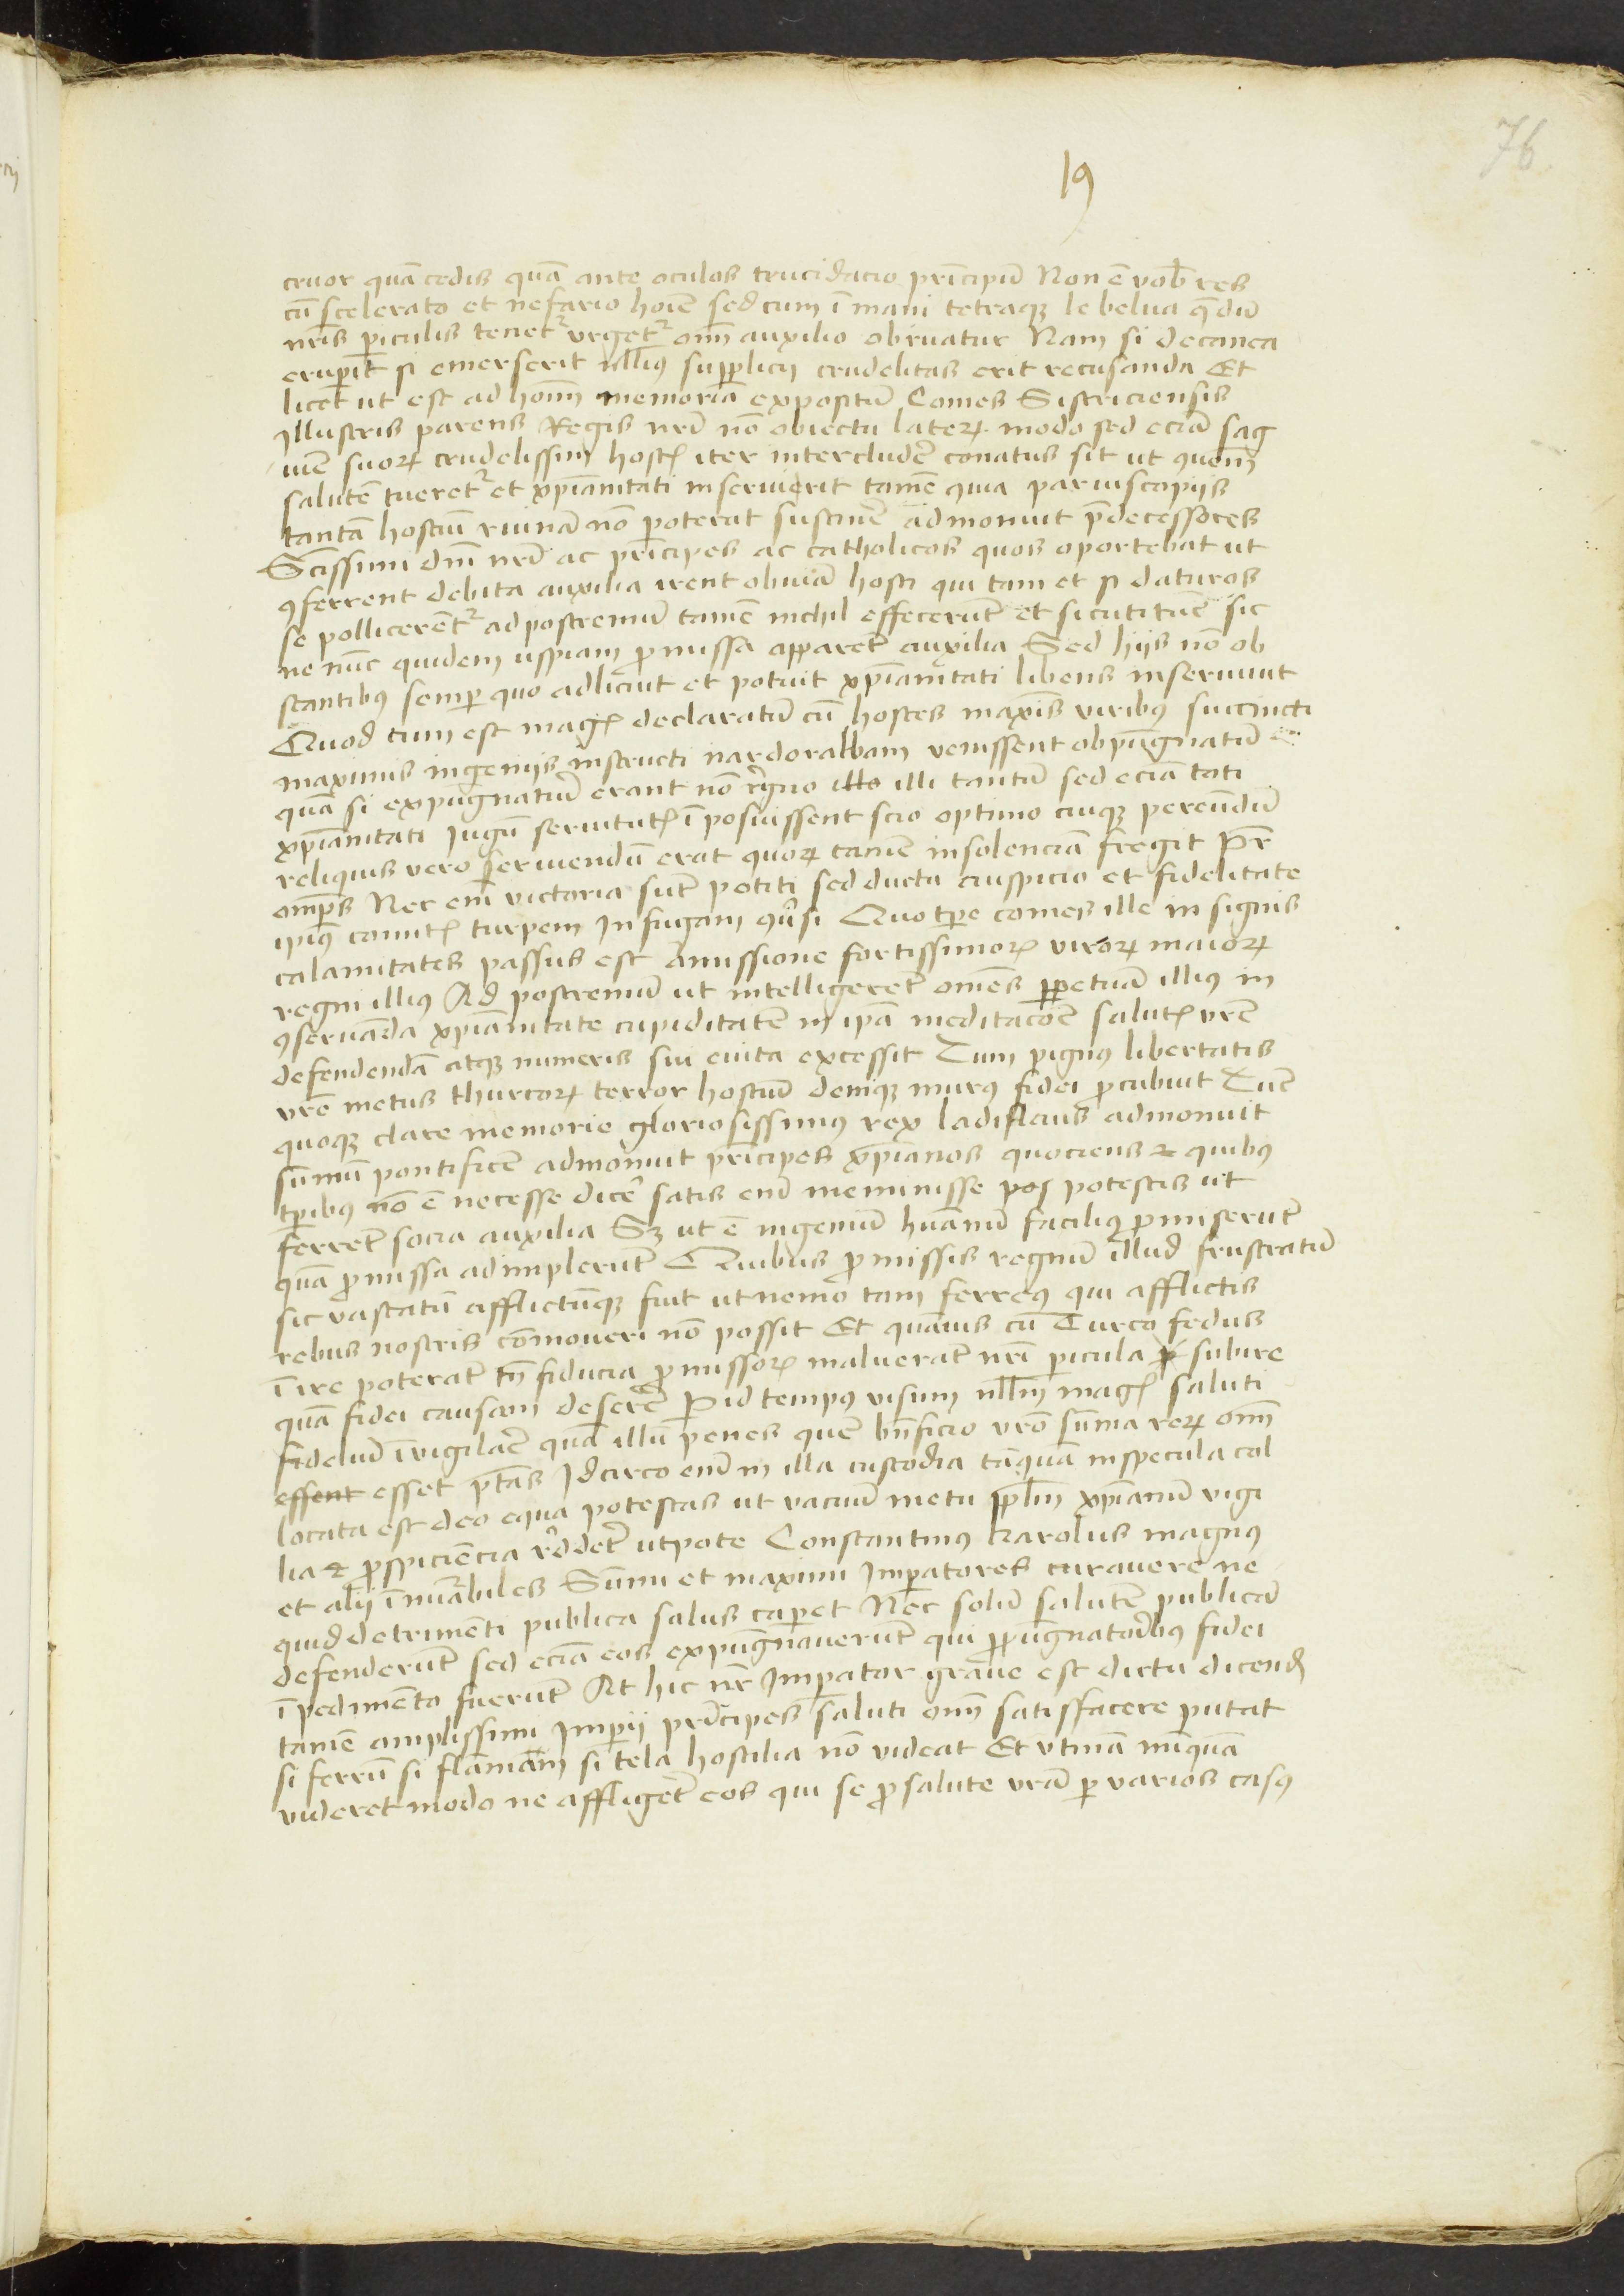 76
19
cruor quā cedis quā ante oculos trucidacio prīcipū Non ē vob̄ res
cū scelerato et nefario hoīe sed cum īmani tetraqꝫ le belua q̄ dū
nr̄is ꝑiculis tenet᷑ vrget᷑ om̄i auxilio obruatur Nam si de cauea
eruꝑit si emerserit nłłiꝯ supplicij crudelitas erit recusanda Et
licet ut est ad hom̄ memoriā expositū Comes Bistriciensis
Illustris parens Regis nr̄i nō obiectu lateꝝ modo sed eciā sag
uīē suoꝝ crudelissim̄ host̄ iter intercludē conatus sit ut ꝯuēm̄
salutē tueret᷑ et xp̄ianitati inseruierit tamē quia paruis copijs
tantā hostiū ruinā nō poterat sustinē admonuit p̄decessores
Sc̄issimi dn̄i nr̄i ac prīcipes ac catholicos quos oportebat ut
ꝯferrent debita auxilia irent obuiā hosti qui tam et si daturos
se pollicerent᷑ ad postremū tamē nichil effecerūt et sicuti tūc sic
ne nūc quidem uspiam ꝓmissa apparēt auxilia Sed hijs nō ob
stantibꝯ semꝑ quo ad licuit et potuit xp̄ianitati libens inseruiuit
Quod tum est maḡ declaratū cū hostes maxīs viribꝯ succincti
maximis ingenijs instructi nardoralbam venissent obpūgnatū
quā si expūgnatū erant nō r̄gno illo illi tantū sed eciā toti
xp̄ianitati Jugū seruitut̄ īposuissent scio optimo cuiqꝫ pereūdū
reliquis vero seruiendū erat quoꝝ tamē insolenciā fregit Pr̄
om̄ps Nec em̄ victoria sūt potiti sed ductu auspicio et fidelitate
ipiꝯ comit̄ turpem In fugam ꝯu̓si Quo tꝑe comes ille insignis
calamitates passus est amissione fortissimoꝝ viroꝝ maioꝝ
regni illiꝯ Ad postremū ut intelligerēt om̄es ꝑpetuā illiꝯ in
ꝯseruāda xp̄ianitate cupiditatē in ipā meditacōē salut̄ vr̄e
defendendā atqꝫ numeris sui euita excessit Tum pignꝯ libertatis
vr̄e metus thurcoꝝ terror hostiū deniqꝫ murꝯ fidei ꝓcubuit Tūc
quoqꝫ clare memorie gloriosissimꝯ rex ladislaus admonuit
sūmū pontificē admonuit prīcipes xp̄ianos quociens ⁊ quibꝯ
tꝑibꝯ nō ē necesse dicē satis em̄ meminisse pos potestis ut
ferrēt socia auxilia Sꝫ ut ē ingeniū huānū faciliꝯ ꝓmiserūt
quā ꝓmissa adimplerūt Quibus ꝓmissis regnū illud frustratū
sic vastatū afflictūqꝫ fuit ut nemo tam ferreꝯ qui afflictis
rebus nostris cōmoueri nō possit Et quāuis cū Turco fedus
īire poterāt tn̄ fiducia ꝓmissoꝝ maluerāt nr̄i ꝑicula subire
quā fidei causam deserē Pid tempꝯ visum nłłm̄ maḡ saluti
fideliū īvigilāē quā illū penes quē bn̄ficio vr̄o sūma reꝝ om̄
essent esset ptās Idcirco em̄ in illa custodia tāquā in specula col
locata est deo equa potestas ut vacuū metu pp̄lm̄ xp̄ianū vigi
lia ⁊ ꝓspiciēcia r̓ddet utpote Constantinꝯ Karolus magnꝯ
et alij īnūabiles Sūmi et maximi Imꝑatores curauere ne
quid detrimenti publica salus caꝑet Nec solū salutē publicā
defenderūt sed eciā eos expūgnauerūt qui ꝓpūgnatoribꝯ fidei
īpedimento fuerūt At hic nr̄ Imꝑator graue est dictu dicend̄
tamē amplissimi Imꝑij prīcipes saluti om̄ satisfacere putat
si ferrū si flāmam si tela hostilia nō videat Et vtinā nūquā
videret modo ne affligēt eos qui se ꝓ salute vr̄a ꝑ varios casꝯ